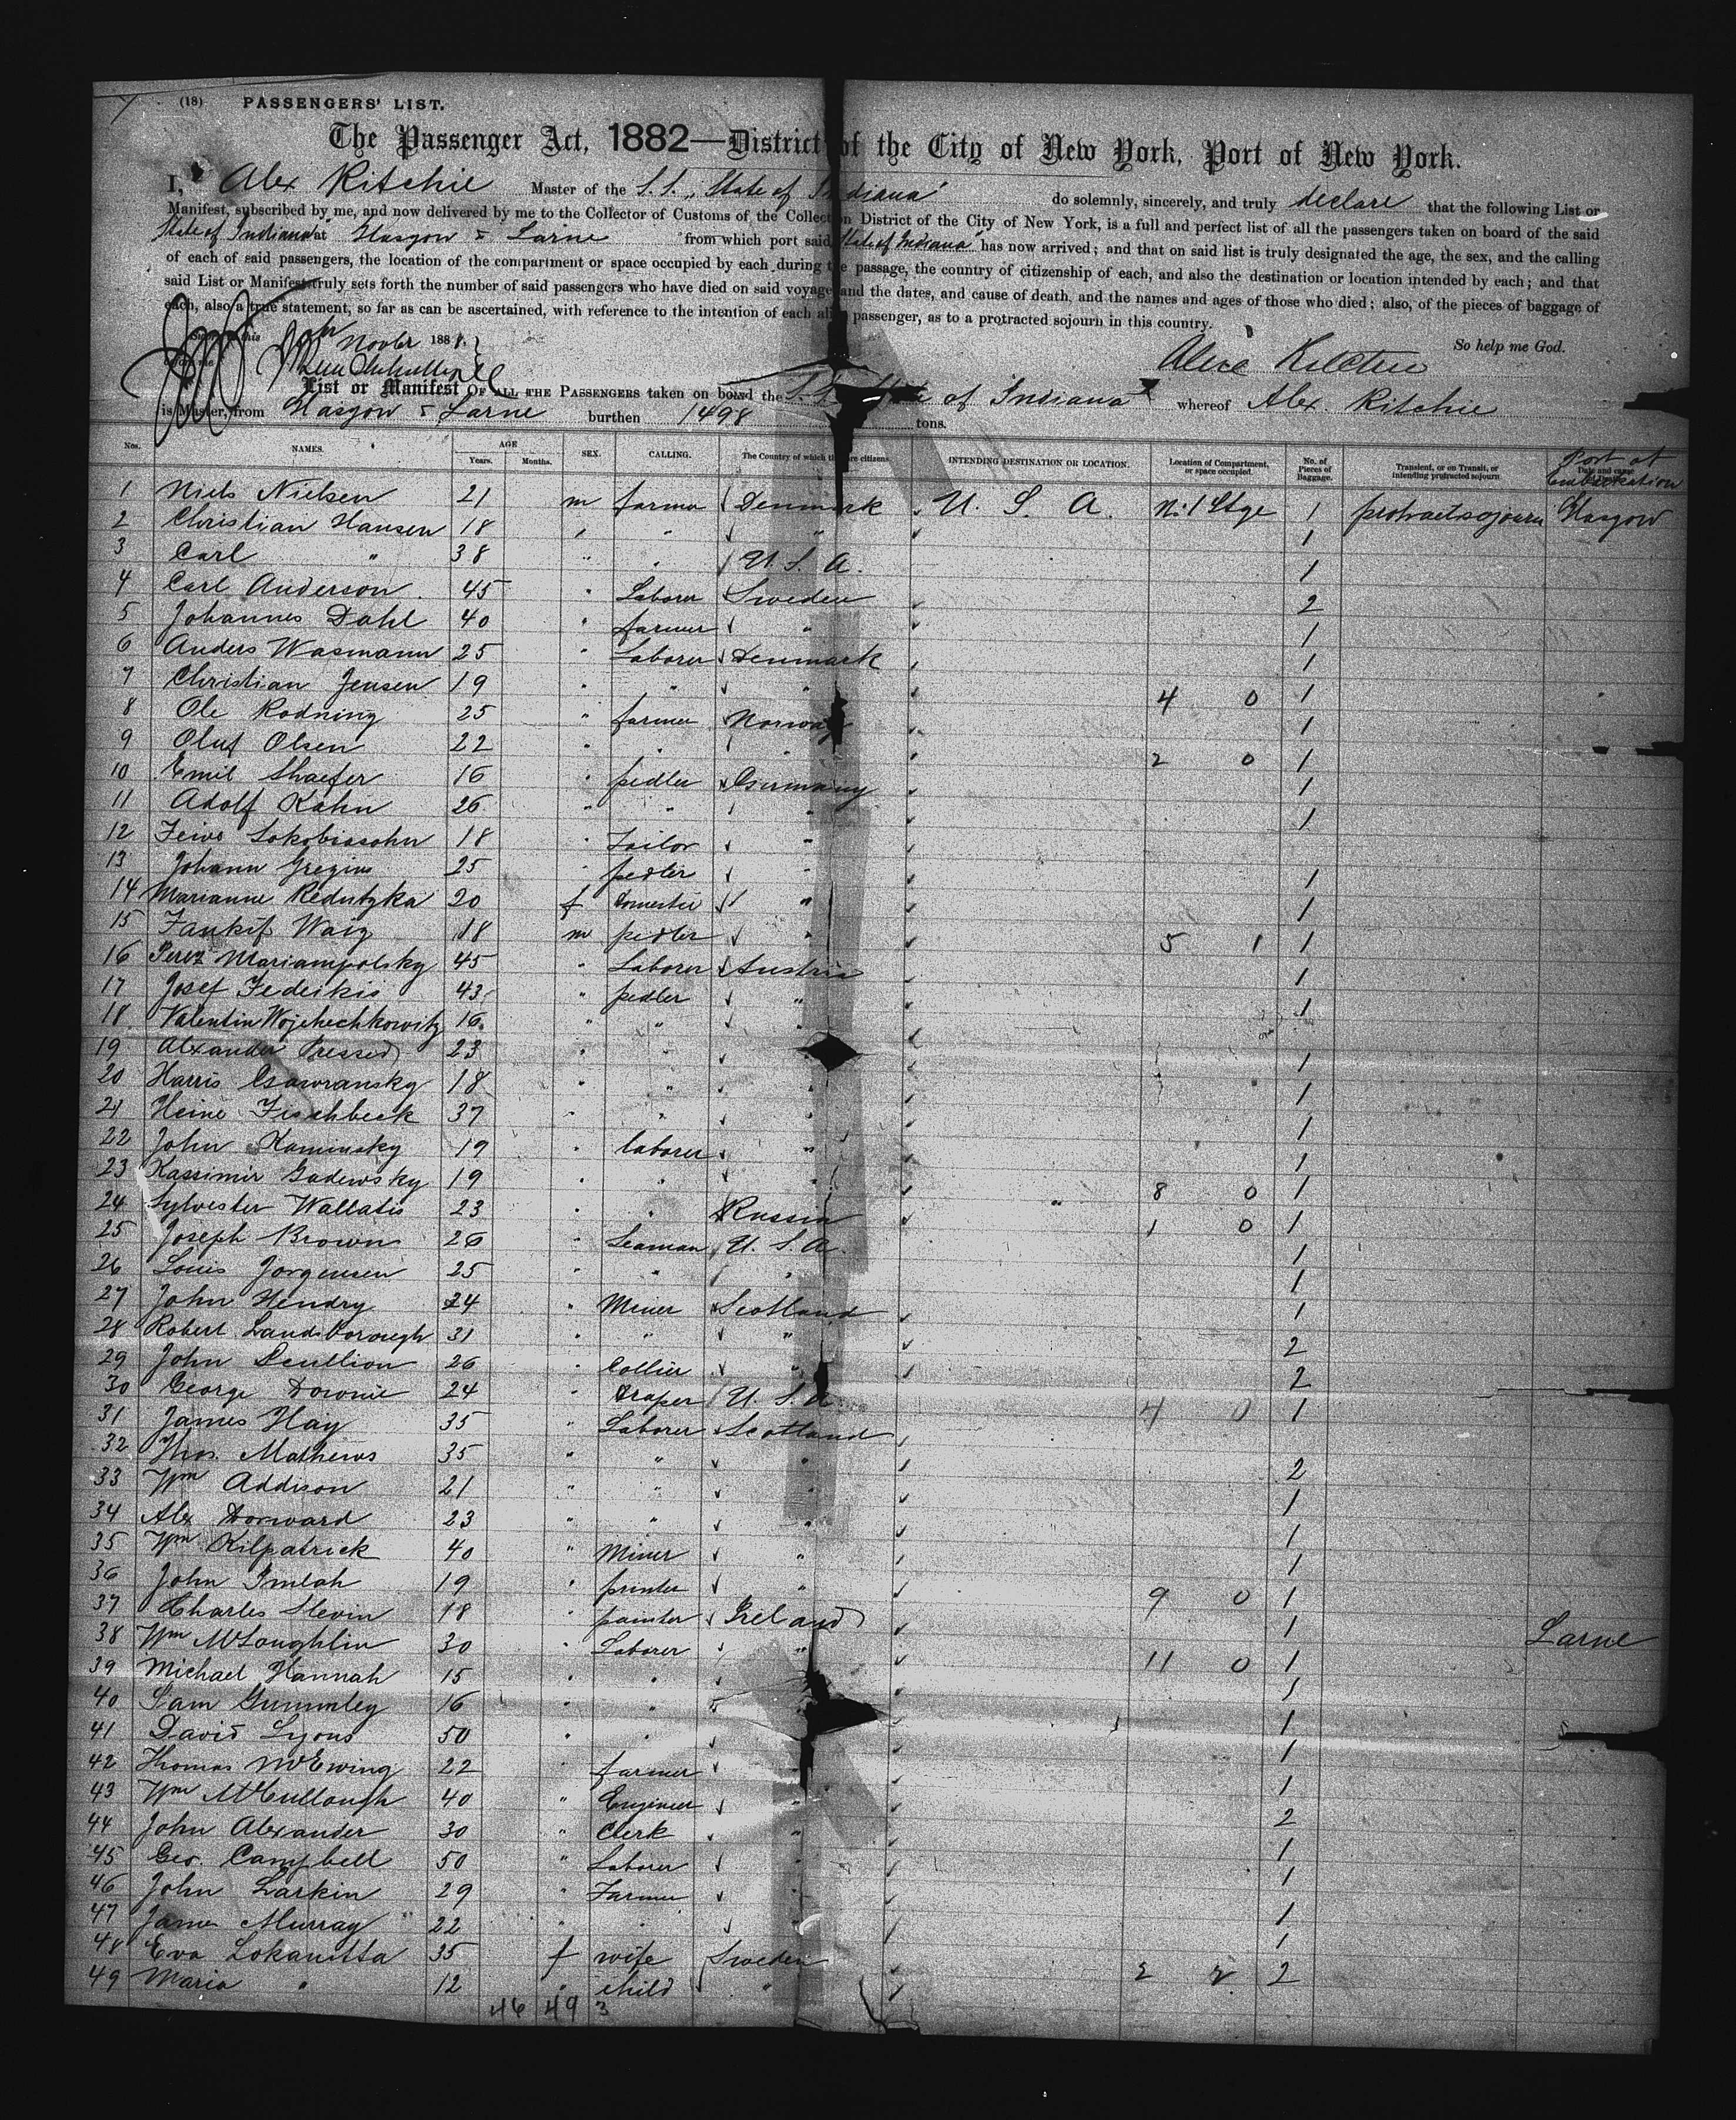 (18) PASSENGERS' LIST.
The Passenger Act, 1882—District of the City of New York, Port of New York.
I, Alex Ritchie Master of the S.S. "State of Indiana" do solemnly, sincerely, and truly declare that the following List or
Manifest, subscribed by me, and now delivered by me to the Collector of Customs of the Collection District of the City of New York, is a full and perfect list of all the passengers taken on board of the said
State of Indiana at Glasgow & Larne from which port said State of Indiana has now arrived; and that on said list is truly designated the age, the sex, and the calling
of each of said passengers, the location of the compartment or space occupied by each during the passage, the country of citizenship of each, and also the destination or location intended by each; and that
said List or Manifest truly sets forth the number of said passengers who have died on said voyage and the dates, and cause of death, and the names and ages of those who died; also, of the pieces of baggage of
each, also a true statement, so far as can be ascertained, with reference to the intention of each alien passenger, as to a protracted sojourn in this country.
this Novber 1888. So help me God.
Alex Ritchie
List or Manifest OF ALL THE PASSENGERS taken on board the S.S. State of Indiana whereof Alex Ritchie
is Master, from Glasgow & Larne burthen 1498 tons.
Nos. NAMES. AGE Years. Months. SEX. CALLING. The Country of which they are citizens. INTENDING DESTINATION OR LOCATION. Location of Compartment, or space occupied. No. of Pieces of Baggage. Transient, or on Transit, or intending protracted sojourn Port of Embarkation
1 Niels Nielsen 21 m farmer Denmark U. S. A. No. 1 Stge 1 protractsojourn Glasgow
2 Christian Hansen 18 " " " 1
3 Carl " 38 " " U. S. A. 1
4 Carl Anderson 45 " Laborer Sweden 2
5 Johannes Dahl 40 " farmer " 1
6 Anders Wasmann 25 " Laborer Denmark 1
7 Christian Jensen 19 " " " 4 0 1
8 Ole Rodning 25 " farmer Norway 1
9 Oluf Olsen 22 " " " 2 0 1
10 Emil Shaefer 16 " pedler Germany 1
11 Adolf Kahn 26 " " " 1
12 18 " Tailor "
13 Johann Gregius 25 " pedler " 1
14 Marianne Redutzka 20 f Domestic " 1
15 Waig 18 m pedler " 5 1 1
16 Perez Mariampolsky 45 " Laborer Austria 1
17 Josef Fedeikis 43 " pedler " 1
18 Valentin Wojchechkowitz 16 " " "
19 Alxander Pressed 23 " " " 1
20 Harris 18 " " " 1
21 Heine Fischbeck 37 " " " 1
22 John Kaminsky 19 " laborer " 1
23 Kassimir Gadewsky 19 " " " " 8 0 1
24 Sylvester Wallatis 23 " " Russia 1 0 1
25 Joseph Brown 26 " Seaman U. S. A. 1
26 Louis Jorgensen 25 " " " 1
27 John Hendry 24 " Miner Scotland 1
28 Robert Landsborough 31 " " " 2
29 John Scullion 26 " Collier " 2
30 George Downie 24 " Draper U. S. A. 4 0 1
31 James Hay 35 " Laborer Scotland
32 Thos. Mathews 35 " " " 2
33 Wm Addison 21 " " " 1
34 Alex Dorward 23 " " " 1
35 Wm Kilpatrick 40 " Miner " 1
36 John Imlah 19 " printer " 9 0 1
37 Charles Slevin 18 " painter Ireland 1 Larne
38 Wm McLoughlin 30 " Laborer " 11 0 1
39 Michael Hannah 15 " " " 1
40 Sam Gummley 16 " " " 1
41 David Lyons 50 " " " 1
42 Thomas McEwing 22 farmer " 1
43 Wm McCullough 40 " Engineer " 2
44 John Alexander 30 " Clerk " 1
45 Geo. Campbell 50 " Laborer " 1
46 John Larkin 29 " Farmer " 1
47 James Murray 22 " " " 1
48 Eva Lokanitta 35 f wife Sweden 2 2 2
49 Maria " 12 " child "
46 49 3